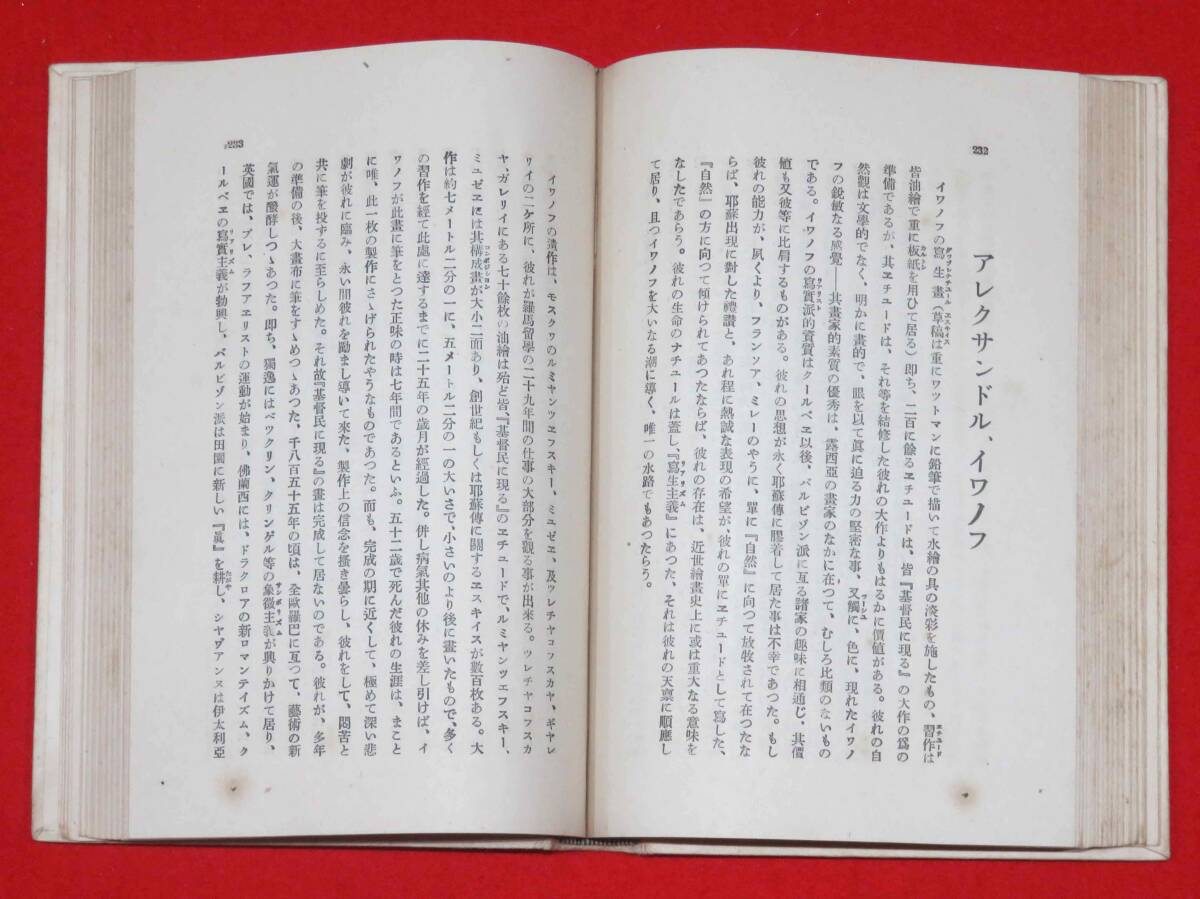 232
アレクサンドル、イワノフ
イワノフの寫生畫（草稿は重にワツトマンに鉛筆で描いて水繪の具の淡彩を施したもの、習作は
皆油繪で重に板紙を用ひて居る）即ち、二百に餘るヱチュードは、皆『基督民に現る』の大作の爲の
準備であるが、其ヱチュードは、それ等を結修した彼れの大作よりもはるかに價値がある。彼れの自
然觀は文學的でなく、明かに畫的で、眼を以て眞に迫る力の堅密な事、又觸に、色に、現れたイワノ
フの鋭敏なる感覺――共畫家的素質の優秀は、露西亞の畫家のなかに在つて、むしろ比類のないもの
である。イワノフの寫實派的資質はクールベヱ以後、バルビゾン派に亙る諸家の趣味に相通じ、其價
値も又彼等に比肩するものがある。彼れの思想が永く耶蘇傳に膠着して居た事は不幸であつた。もし
彼れの能力が、夙くより、フランソア、ミレーのやうに、單に『自然』に向つて放牧されて在つたな
らば、耶蘇出現に對した禮讃と、あれ程に熱誠な表現の希望が、彼れの單にヱチュードとして寫した、
『自然』の方に向つて傾けられてあつたならば、彼れの存在は、近世繪畫史上に或は重大なる意味を
なしたであらう。彼れの生命のナチュールは蓋し、『寫生主義』にあつた、それは彼れの天禀に順應し
て居り、且つイワノフを大いなる潮に導く、唯一の水路でもあつたらう。
233
イワノフの遺作は、モスクワのルミヤンツヱフスキー、ミユゼヱ、及ツレチヤコフスカヤ、ギヤレ
リイの二ケ所に、彼れが羅馬留學の二十九年間の仕事の大部分を觀る事が出來る。ツレチヤコフスカ
ヤ、ガレリイにある七十餘枚の油繪は殆ど皆、『基督民に現る』のヱチュードで、ルミヤンツエフスキー、
ミユゼヱには其構成畫が大小二面あり、創世紀もしくは耶蘇傳に關するヱスキイスが數百枚ある。大
作は約七メートル二分の一に、五メートル二分の一の大いさで、小さいのより後に畫いたもので、多く
の習作を經て此處に達するまでに二十五年の歳月が經過した。併し病氣其他の休みを差し引けば、イ
ワノフが此畫に筆をとつた正味の時は七年間であるといふ。五十二歳で死んだ彼れの生涯は、まこと
に唯、此一枚の製作にさゝげられたやうなものであつた。而も、完成の期に近くして、極めて深い悲
劇が彼れに臨み、永い間彼れを勵まし導いて來た、製作上の信念を搔き曇らし、彼れをして、悶苦と
共に筆を投するに至らしめた。それ故『基督民に現る』の畫は完成して居ないのである。彼れが、多年
の準備の後、大畫布に筆をすゝめつゝあつた、千八百五十五年の頃は、全歐羅巴に亙つて、藝術の新
氣運が醱酵しつゝあつた。即ち、獨逸にはベツクリン、クリンゲル等の象徵主義が興りかけて居り、
英國では、プレ、ラフアヱリストの運動が始まり、佛蘭西には、ドラクロアの新ロマンテイズム、ク
ールベヱの寫實主義が勃興し、バルビゾン派は田園に新しい『眞』を耕し、シヤヴアンヌは伊太利亞